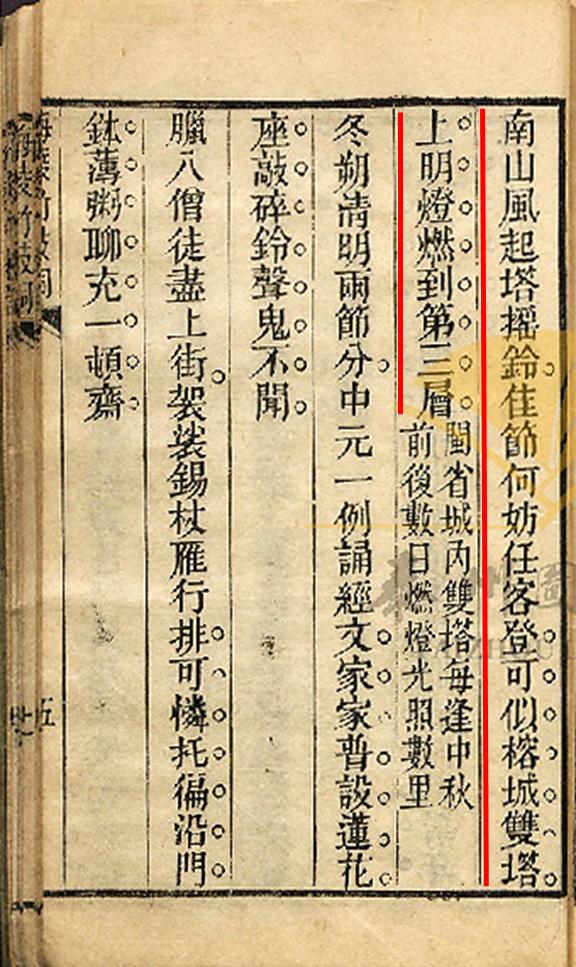 南山風起塔摇鈴佳節何妨任客登可似榕城雙塔
上明燈燃到第三層閩省城内雙塔每逢中秋
前後數日燃燈光照數里
冬朔清明兩節分中元一例誦經文家家普設蓮花
座敲碎鈴聲鬼不聞
臘八僧徒盡上街袈裟錫杖雁行排可憐托徧沿門
鉢薄粥聊充一頓齋
竹枝詞
五